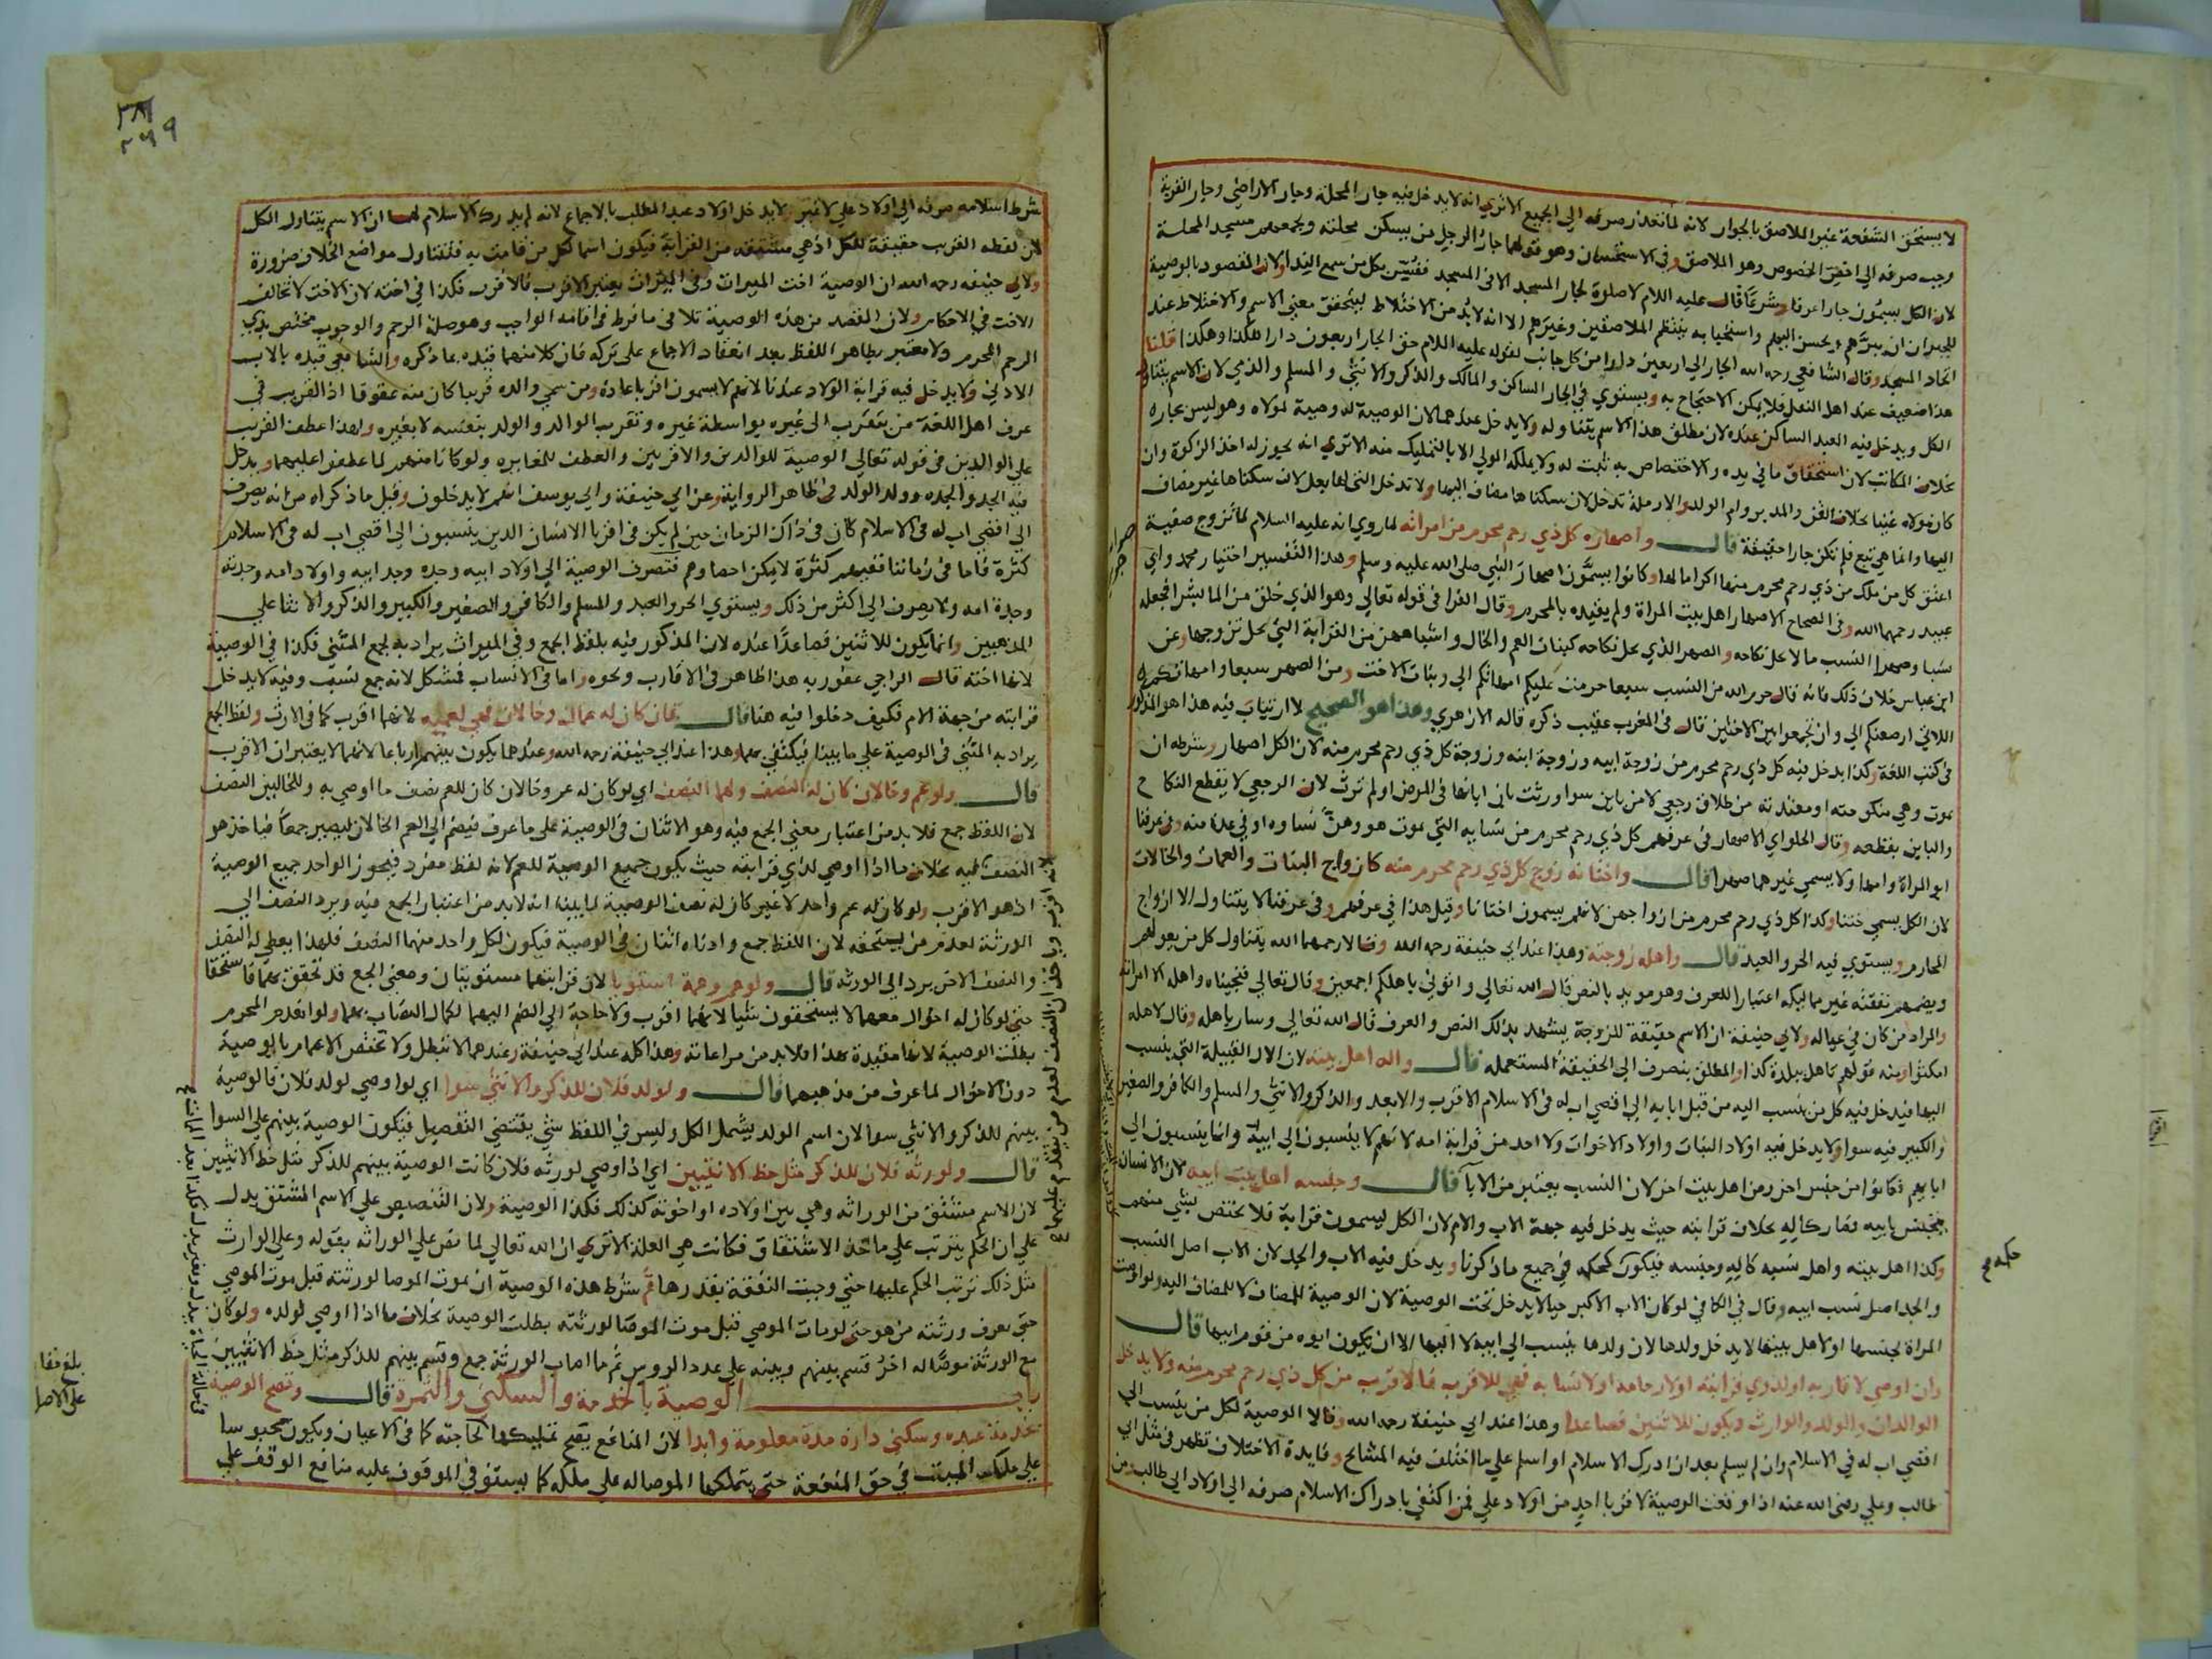 لا يستحق الشفعة غير الملاصق بالجوار لانه لما تعذر صرفه الى الجميع الا ترى انه لا يدخل فيه جار المحلة وجار الاراضي وجار القرية
وجب صرفه الى اخص الخصوص وهو الملاصق وفي الاستحسان وهو قولهما جار الرجل من يسكن محلته ويجمعهم مسجد المحلة
لان الكل يسمون جارا عرفا وشرعا قال عليه السلام لا صلوة لجار المسجد الا في المسجد ففسر بكل من سمع النداء ولان المقصود بالوصية
للجيران ان يبرهم ويحسن اليهم واستحبابه ينتظم الملاصقين وغيرهم الا انه لا بد من الاختلاط ليتحقق معنى الاسم والاختلاط عند
اتحاد المسجد وقال الشافعي رحمه الله الجار الى اربعين دارا من كل جانب لقوله عليه السلام حق الجار اربعون دارا هكذا وهكذا قلنا
هذا ضعيف عند اهل النقل فلا يمكن الاحتجاج به ويستوي في الجار الساكن والمالك والذكر والانثى والمسلم والذمي لان الاسم يتناول
الكل ويدخل فيه العبد الساكن عنده لان مطلق هذا الاسم يتناوله ولا يدخل عندهما لان الوصية له وصية لمولاه وهو ليس بجاره
بخلاف المكاتب لان استحقاق ما في يده والاختصاص به ثابت له ولا يملكه المولى الا بالتمليك منه الا ترى انه يجوز له اخذ الزكوة وان
كان مولاه غنيا بخلاف القن والمدبر وام الولد والارملة تدخل لان سكناها مضاف اليها ولا تدخل التي لها بعل لان سكناها غير مضاف
اليها وانما هي تبع فلم تكن جارا حقيقة قال واصهاره كل ذي رحم محرم من امراته لما روي انه عليه السلام لما تزوج صفية
اعتق كل من ملك من ذي رحم محرم منها اكراما لها وكانوا يسمون اصهار النبي صلى الله عليه وسلم وهذا التفسير اختيار محمد وابي
عبيد رحمهما الله وفي الصحاح الاصهار اهل بيت المراة ولم يقيده بالمحرم وقال الفرا في قوله تعالى وهو الذي خلق من الما بشرا فجعله
نسبا وصهرا النسب ما لا يحل نكاحه والصهر الذي يحل نكاحه كبنات العم والخال واشباههن من القرابة التي يحل تزوجها وعن
ابن عباس خلاف ذلك فانه قال حرم الله من النسب سبعا حرمت عليكم امهاتكم الى وبنات الاخت ومن الصهر سبعا وامهاتكم
اللاتي ارضعنكم الى وان تجمعوا بين الاختين قال في المغرب عقيب ذكره قاله الازهري وهذا هو الصحيح لا ارتياب فيه هذا هو المذكور
في كتب اللغة وكذا يدخل فيه كل ذي رحم محرم من زوجة ابيه وزوجة ابنه وزوجة كل ذي رحم محرم منه لان الكل اصهار وشرطه ان
يموت وهي منكوحته او معتدته من طلاق رجعي لا من باين سوا ورثت بان ابانها في المرض او لم ترث لان الرجعي لا يقطع النكاح
والباين يقطعه وقال الحلواي الاصهار في عرفهم كل ذي رحم محرم من نسايه التي يموت هو وهن نساوه او في عدة منه وفي عرفنا
ابو المراة وامها ولا يسمى غيرهما صهرا قال واختانه زوج كل ذي رحم محرم منه كازواج البنات والعمات والخالات
لان الكل يسمى ختنا وكذا كل ذي رحم محرم من ازواجهن لانهم يسمون اختانا وقيل هذا في عرفهم وفي عرفنا لا يتناول الا ازواج
المحارم ويستوي فيه الحر والعبد قال واهله زوجته وهذا عند ابي حنيفة رحمه الله وقالا رحمهما الله يتناول كل من يعولهم
ويضمهم نفقته غير مماليكه اعتبارا للعرف وهو مويد بالنص قال الله تعالى واتوني باهلكم اجمعين وقال تعالى فنجيناه واهله الا امراته
والمراد من كان في عياله ولابي حنيفة ان الاسم حقيقة للزوجة يشهد بذلك النص والعرف قال الله تعالى وسار باهله وقال لاهله
امكثوا ومنه قولهم تاهل ببلدة كذا والمطلق ينصرف الى الحقيقة المستعملة قال واله اهل بيته لان الال القبيلة التي ينسب
اليها فيدخل فيه كل من ينسب اليه من قبل ابايه الى اقصى اب له في الاسلام الاقرب والابعد والذكر والانثى والمسلم والكافر والصغير
والكبير فيه سوا ولا يدخل فيه اولاد البنات واولاد الاخوات ولا احد من قرابة امه لانهم لا ينسبون الى ابيه وانما ينسبون الى
ابايهم فكانوا من جنس اخر ومن اهل بيت اخر لان النسب يعتبر من الابا قال وجنسه اهل بيت ابيه لان الانسان
يتجنس بابيه فصار كاله بخلاف قرابته حيث يدخل فيه جهة الاب والام لان الكل يسمون قرابة فلا يختص بشي منهم
وكذا اهل بيته واهل نسبه كاله وجنسه فيكون كحكمه في جميع ما ذكرنا ويدخل فيه الاب والجد لان الاب اصل النسب
والجد اصل نسب ابيه وقال في الكافي لو كان الاب الاكبر حيا لا يدخل تحت الوصية لان الوصية للمضاف لا للمضاف اليه ولو اوصت
المراة لجنسها او لاهل بيتها لا يدخل ولدها لان ولدها ينسب الى ابيه لا اليها الا ان يكون ابوه من قوم ابيها قال
وان اوصى لاقاربه او لذوي قرابته او لارحامه او لانسابه فهي للاقرب فالاقرب من كل ذي رحم محرم منه ولا يدخل
الوالدان والولد والوارث ويكون للاثنين فصاعدا وهذا عند ابي حنيفة رحمه الله وقالا الوصية لكل من ينسب الى
اقصى اب له في الاسلام وان لم يسلم بعد ان ادرك الاسلام او اسلم على ما اختلف فيه المشايخ وفايدة الاختلاف تظهر في مثل ابي
طالب وعلي رضي الله عنه اذا وقعت الوصية لاقربا احد من اولاد علي فمن اكتفى بادراك الاسلام صرفه الى اولاد ابي طالب ومن
حكمه صح
٢٦٩
شرط اسلامه صرفه الى اولاد علي لا غير ولا يدخل اولاد عبد المطلب بالاجماع لانه لم يدرك الاسلام لهما ان الاسم يتناول الكل
لان لفظه القريب حقيقة للكل اذ هي مشتقة من القرابة فيكون اسما لكل من قامت به فتتناول مواضع الخلاف ضرورة
ولابي حنيفة رحمه الله ان الوصية اخت الميراث وفي الميراث يعتبر الاقرب فالاقرب فكذا في اخته لان الاخت لا تخالف
الاخت في الاحكام ولان المقصد من هذه الوصية تلافي ما فرط في اقامة الواجب وهو صلة الرحم والوجوب مختص بذي
الرحم المحرم ولا معتبر بظاهر اللفظ بعد انعقاد الاجماع على تركه فان كلا منهما قيده بما ذكره والشافعي قيده بالاب
الادنى ولا يدخل فيه قرابة الولاد عندنا لانهم لا يسمون اقربا عادة ومن سمى والده قريبا كان منه عقوقا اذ القريب في
عرف اهل اللغة من يتقرب الى غيره بواسطة غيره وتقرب الوالد والولد بنفسه لا بغيره ولهذا عطف القريب
على الوالدين في قوله تعالى الوصية للوالدين والاقربين والعطف للمغايرة ولو كانا منهم لما عطفوا عليهما ويدخل
فيه الجد والجده وولد الولد في ظاهر الرواية وعن ابي حنيفة وابي يوسف انهم لا يدخلون وقيل ما ذكراه من انه يصرف
الى اقصى اب له في الاسلام كان في ذاك الزمان حين لم يكن في اقربا الانسان الذين ينسبون الى اقصى اب له في الاسلام
كثرة فاما في زماننا ففيهم كثرة لا يمكن احصاوهم فتصرف الوصية الى اولاد ابيه وجده وجد ابيه واولاد امه وجدته
وجدة امه ولا يصرف الى اكثر من ذلك ويستوي الحر والعبد والمسلم والكافر والصغير والكبير والذكر والانثى على
المذهبين وانما يكون للاثنين فصاعدا عنده لان المذكور فيه بلفظ الجمع وفي الميراث يراد بالجمع المثنى فكذا في الوصية
لانها اخته قال الراجي عفو ربه هذا ظاهر في الاقارب ونحوه واما في الانساب فمشكل لانه جمع نسب وفيه لا يدخل
قرابته من جهة الام فكيف دخلوا فيه هنا قال فان كان له عمان وخالان فهي لعميه لانهما اقرب كما في الارث ولفظ الجمع
يراد به المثنى في الوصية على ما بينا فيكتفى بهما وهذا عند ابي حنيفة رحمه الله وعندهما يكون بينهم ارباعا لانهما لا يعتبران الاقرب
قال ولو عم وخالان كان له النصف ولهما النصف اي لو كان له عم وخالان كان للعم نصف ما اوصي به وللخالين النصف
لان اللفظ جمع فلا بد من اعتبار معنى الجمع فيه وهو الاثنان في الوصية على ما عرف فيضم الى العم الخالان ليصير جمعا فياخذ هو
النصف بخلاف ما اذا اوصى لذي قرابته حيث يكون جميع الوصية للعم لانه لفظ مفرد فيحوز الواحد جميع الوصية
اذ هو الاقرب ولو كان له عم واحد لا غير كان له نصف الوصية لما بينا انه لا بد من اعتبار الجمع فيه ويرد النصف الى
الورثة لعدم من يستحقه لان اللفظ جمع وادناه اثنان في الوصية فيكون لكل واحد منهما النصف فلهذا يعطى له النصف
والنصف الاخر يرد الى الورثة قال ولو عم وعمة استويا لان قرابتهما مستويتان ومعنى الجمع قد تحقق بهما فاستحقا
حتى لو كان له اخوال معهما لا يستحقون شيا لانهما اقرب ولا حاجة الى الضم اليهما لكمال النصاب بهما ولو انعدم المحرم
بطلت الوصية لانها مقيدة بهذا فلا بد من مراعاته وهذا كله عند ابي حنيفة وعندهما لا تبطل ولا تختص الاعمام بالوصية
دون الاخوال لما عرف من مذهبهما قال ولولد فلان للذكر والانثى سوا اي لو اوصى لولد فلان فالوصية
بينهم للذكر والانثى سوا لان اسم الولد يشمل الكل وليس في اللفظ شي يقتضي التفصيل فيكون الوصية بينهم على السوا
قال ولورثة فلان للذكر مثل حظ الانثيين اي اذا اوصى لورثة فلان كانت الوصية بينهم للذكر مثل حظ الانثيين
لان الاسم مشتق من الوراثة وهي بين اولاده او اخوته كذلك فكذا الوصية ولان التنصيص على الاسم المشتق يدل
على ان الحكم يترتب على ماخذ الاشتقاق فكانت هي العلة الا ترى ان الله تعالى لما نص على الوراثة بقوله وعلى الوارث
مثل ذلك ترتب الحكم عليها حتى وجبت النفقة بقدرها ثم شرط هذه الوصية ان يموت الموصا لورثته قبل موت الموصي
حتى يعرف ورثته من هو حتى لو مات الموصي قبل موت الموصا لورثته بطلت الوصية بخلاف ما اذا اوصى لولده ولو كان
مع الورثة موصا له اخر قسم بينهم وبينه على عدد الروس ثم ما اصاب الورثة جمع وقسم بينهم للذكر مثل حظ الانثيين
باب الوصية بالخدمة والسكنى والثمرة قال وتصح الوصية
بخدمة عبده وسكنى داره مدة معلومة وابدا لان المنافع يصح تمليكها في حالة الحياة ببدل وبغير بدل فكذا بعد الممات لحاجته كما في الاعيان ويكون محبوسا
على ملك الميت في حق المنفعة حتى يتملكها الموصا له على ملكه كما يستوفي الموقوف عليه منافع الوقف على
بلغ مقابلة
على الاصل